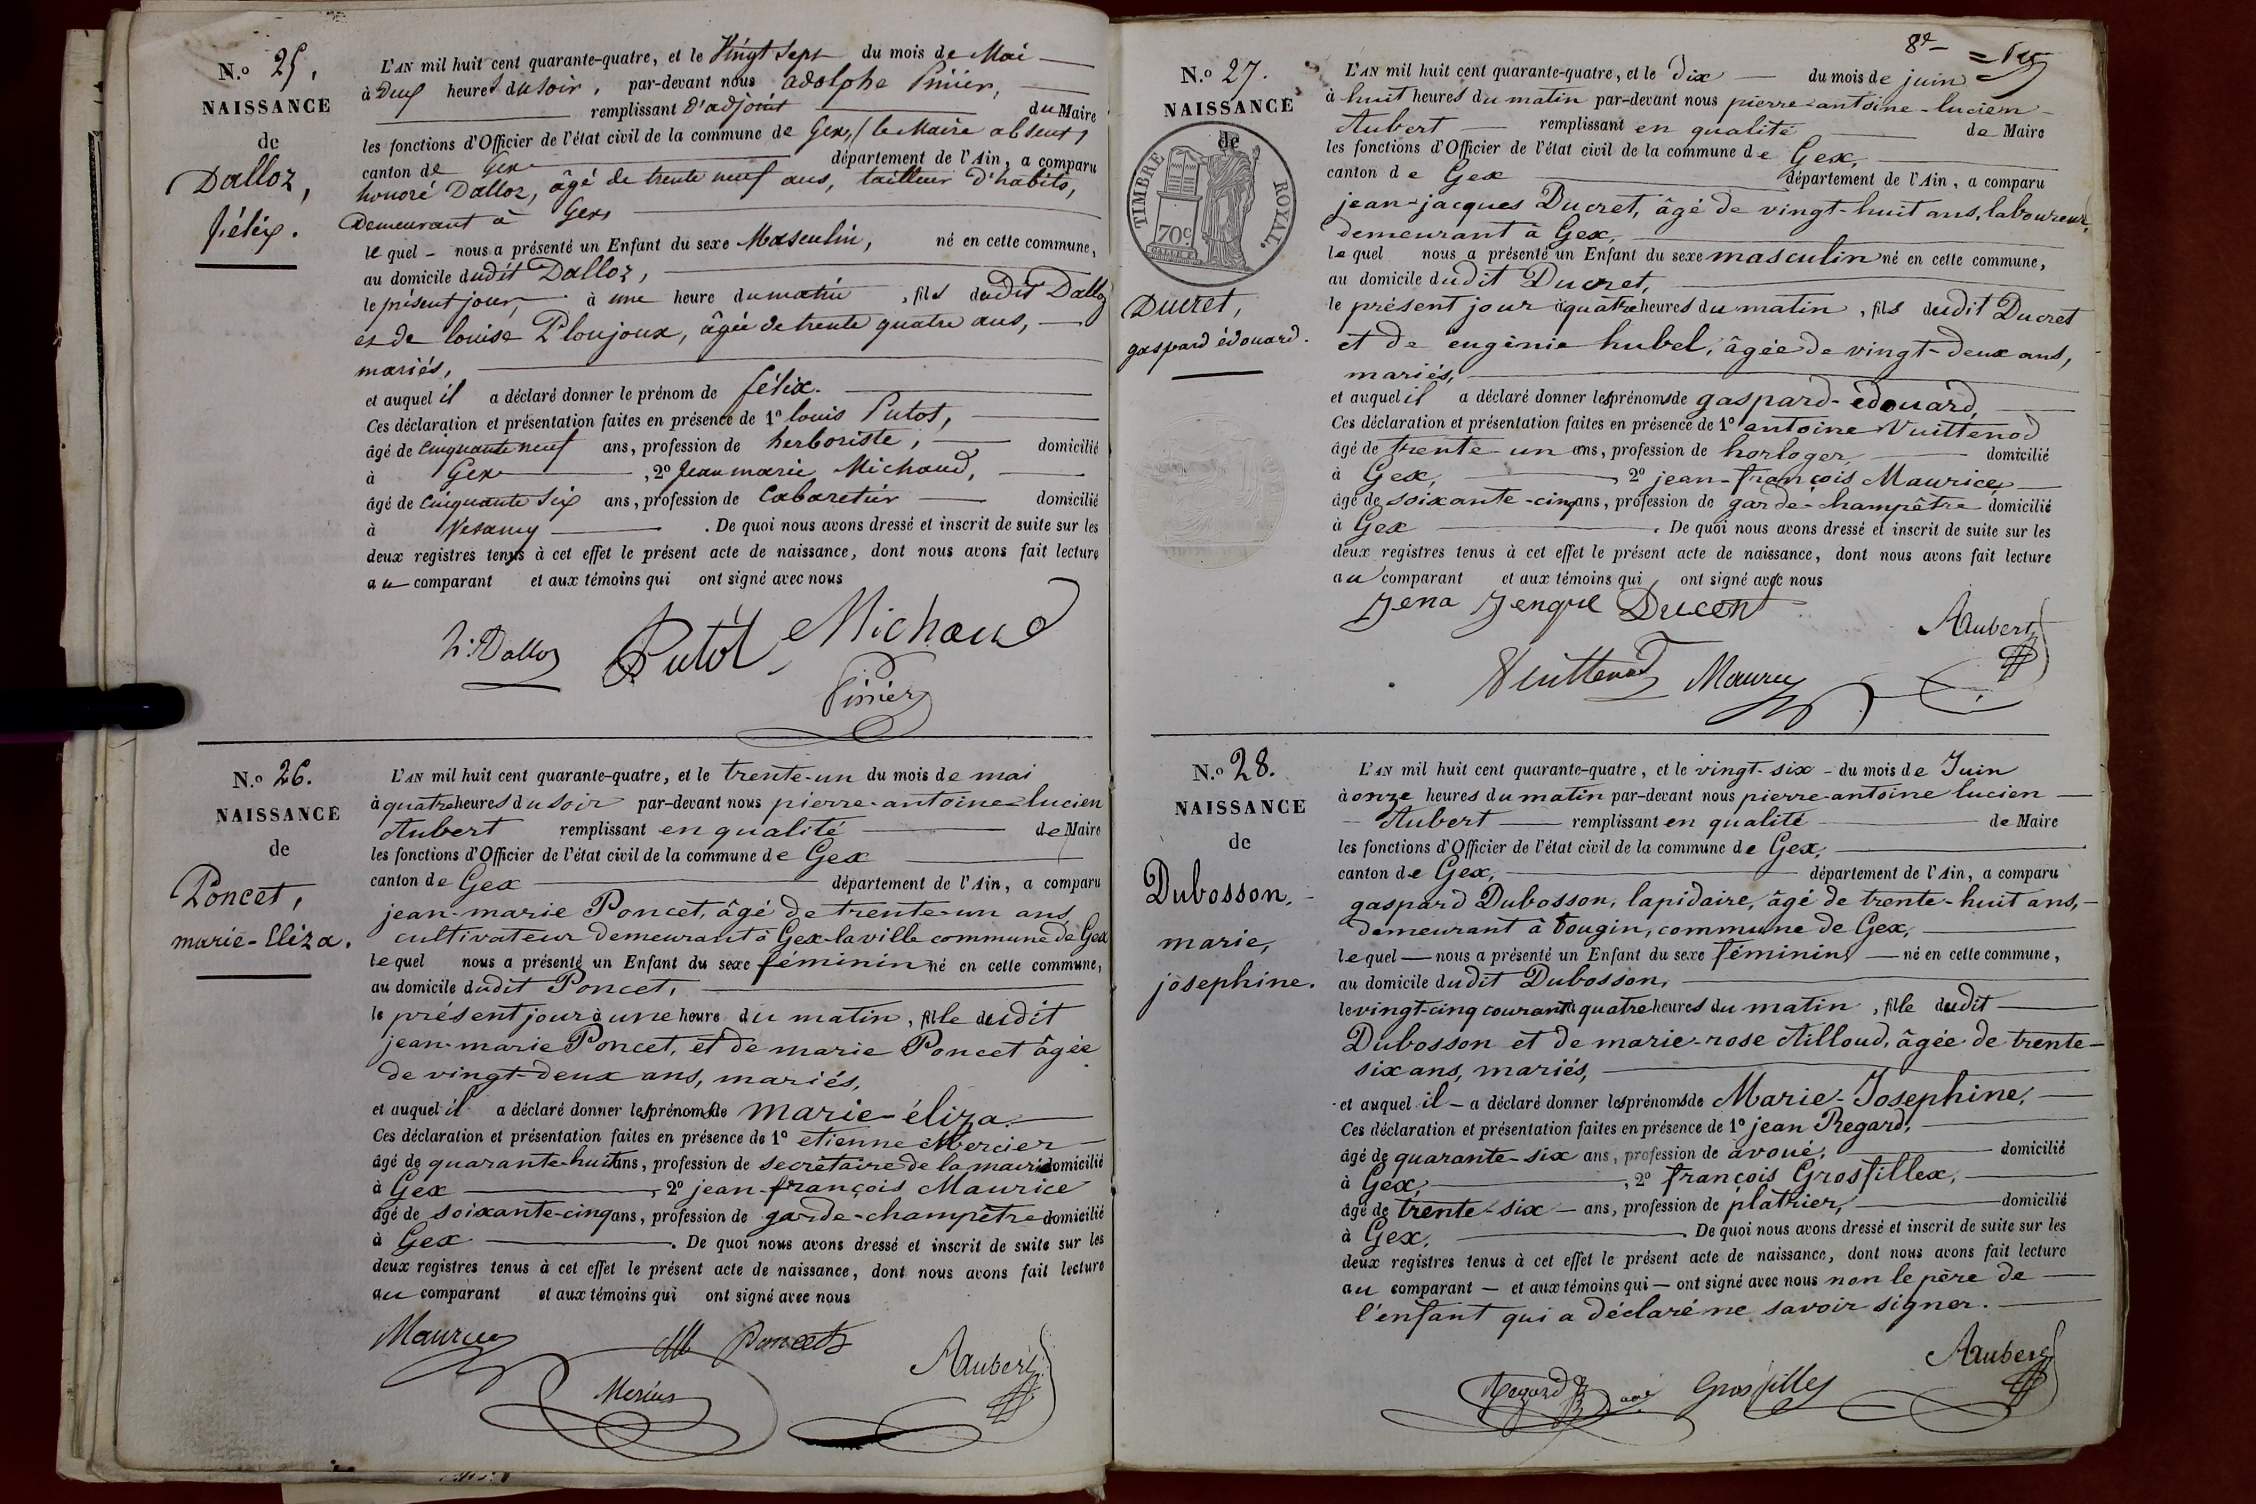 N.o 25,
NAISSANCE
de
Dalloz,
félix.
L'AN mil huit cent quarante-quatre, et le Vingt Sept du mois de Mai
à Deux heures du soir, par-devant nous adolphe Pinier,
remplissant d'adjoint du Maire
les fonctions d'Officier de l'état civil de la commune de Gex, le Maire absent,
canton de Gex département de l'Ain, a comparu
honoré Dalloz, âgé de trente neuf ans, tailleur d'habits,
Demeurant à Gex,
le quel nous a présenté un Enfant du sexe Masculin, né en cette commune,
au domicile dudit Dalloz,
le présent jour, à une heure du matin, fils dudit Dalloz
et de louise Ploujoux, âgée de trente quatre ans,
mariés,
et auquel il a déclaré donner le prénom de félix.
Ces déclaration et présentation faites en présence de 1º louis Putot,
âgé de cinquante neuf ans, profession de herboriste, domicilié
à Gex, 2º Jean marie Michaud,
âgé de cinquante six ans, profession de Cabaretier domicilié
à Vesancy. De quoi nous avons dressé et inscrit de suite sur les
deux registres tenus à cet effet le présent acte de naissance, dont nous avons fait lecture
au comparant et aux témoins qui ont signé avec nous
h. Dalloz Putot Michaud
Pinier
N.o 26.
NAISSANCE
de
Poncet,
marie-Eliza.
L'AN mil huit cent quarante-quatre, et le trente-un du mois de mai
à quatre heures du soir par-devant nous pierre-antoine-lucien
Aubert remplissant en qualité de Maire
les fonctions d'Officier de l'état civil de la commune de Gex
canton de Gex département de l'Ain, a comparu
jean-marie Poncet, âgé de trente-un ans
cultivateur demeurant à Gex-la-ville commune de Gex
lequel nous a présenté un Enfant du sexe féminin né en cette commune,
au domicile dudit Poncet,
le présent jour à une heure du matin, fille dudit
jean-marie Poncet, et de marie Poncet âgée
de vingt-deux ans, mariés,
et auquel il a déclaré donner les prénoms de marie-éliza.
Ces déclaration et présentation faites en présence de 1º etienne Mercier
âgé de quarante-huit ans, profession de secrétaire de la mairie domicilié
à Gex, 2º jean-françois Maurice
âgé de soixante-cinq ans, profession de garde-champêtre domicilié
à Gex. De quoi nous avons dressé et inscrit de suite sur les
deux registres tenus à cet effet le présent acte de naissance, dont nous avons fait lecture
au comparant et aux témoins qui ont signé avec nous
Maurice Poncet Aubert
Mercier
8e
N.o 27.
NAISSANCE
de
TIMBRE ROYAL.
70c
Ducret,
gaspard édouard.
L'AN mil huit cent quarante-quatre, et le dix du mois de juin
à huit heures du matin par-devant nous pierre-antoine-lucien
Aubert remplissant en qualité de Maire
les fonctions d'Officier de l'état civil de la commune de Gex,
canton de Gex département de l'Ain, a comparu
jean-jacques Ducret, âgé de vingt-huit ans, laboureur,
demeurant à Gex,
lequel nous a présenté un Enfant du sexe masculin né en cette commune,
au domicile dudit Ducret,
le présent jour à quatre heures du matin, fils dudit Ducret
et de eugénie hubel, âgée de vingt-deux ans,
mariés,
et auquel il a déclaré donner les prénoms de gaspard-édouard,
Ces déclaration et présentation faites en présence de 1º antoine Vuittenod
âgé de trente-un ans, profession de horloger, domicilié
à Gex, 2º jean-françois Maurice,
âgé de soixante-cinq ans, profession de garde-champêtre domicilié
à Gex. De quoi nous avons dressé et inscrit de suite sur les
deux registres tenus à cet effet le présent acte de naissance, dont nous avons fait lecture
au comparant et aux témoins qui ont signé avec nous
Aubert
Vuittenod Maurice
N.o 28.
NAISSANCE
de
Dubosson,
marie,
josephine.
L'AN mil huit cent quarante-quatre, et le vingt-six du mois de Juin
à onze heures du matin par-devant nous pierre-antoine lucien
Aubert remplissant en qualité de Maire
les fonctions d'Officier de l'état civil de la commune de Gex,
canton de Gex, département de l'Ain, a comparu
gaspard Dubosson, lapidaire, âgé de trente-huit ans,
demeurant à tougin, commune de Gex,
lequel nous a présenté un Enfant du sexe féminin, né en cette commune,
au domicile dudit Dubosson,
le vingt-cinq courant à quatre heures du matin, fille dudit
Dubosson et de marie-rose Ailloud, âgée de trente-
six ans, mariés,
et auquel il a déclaré donner les prénoms de Marie-Josephine,
Ces déclaration et présentation faites en présence de 1º jean Regard,
âgé de quarante-six ans, profession de avoué, domicilié
à Gex, 2º françois Grosfillex,
âgé de trente-six ans, profession de platrier, domicilié
à Gex, De quoi nous avons dressé et inscrit de suite sur les
deux registres tenus à cet effet le présent acte de naissance, dont nous avons fait lecture
au comparant et aux témoins qui ont signé avec nous non le père de
l'enfant qui a déclaré ne savoir signer.
Aubert
Regard Grosfillex